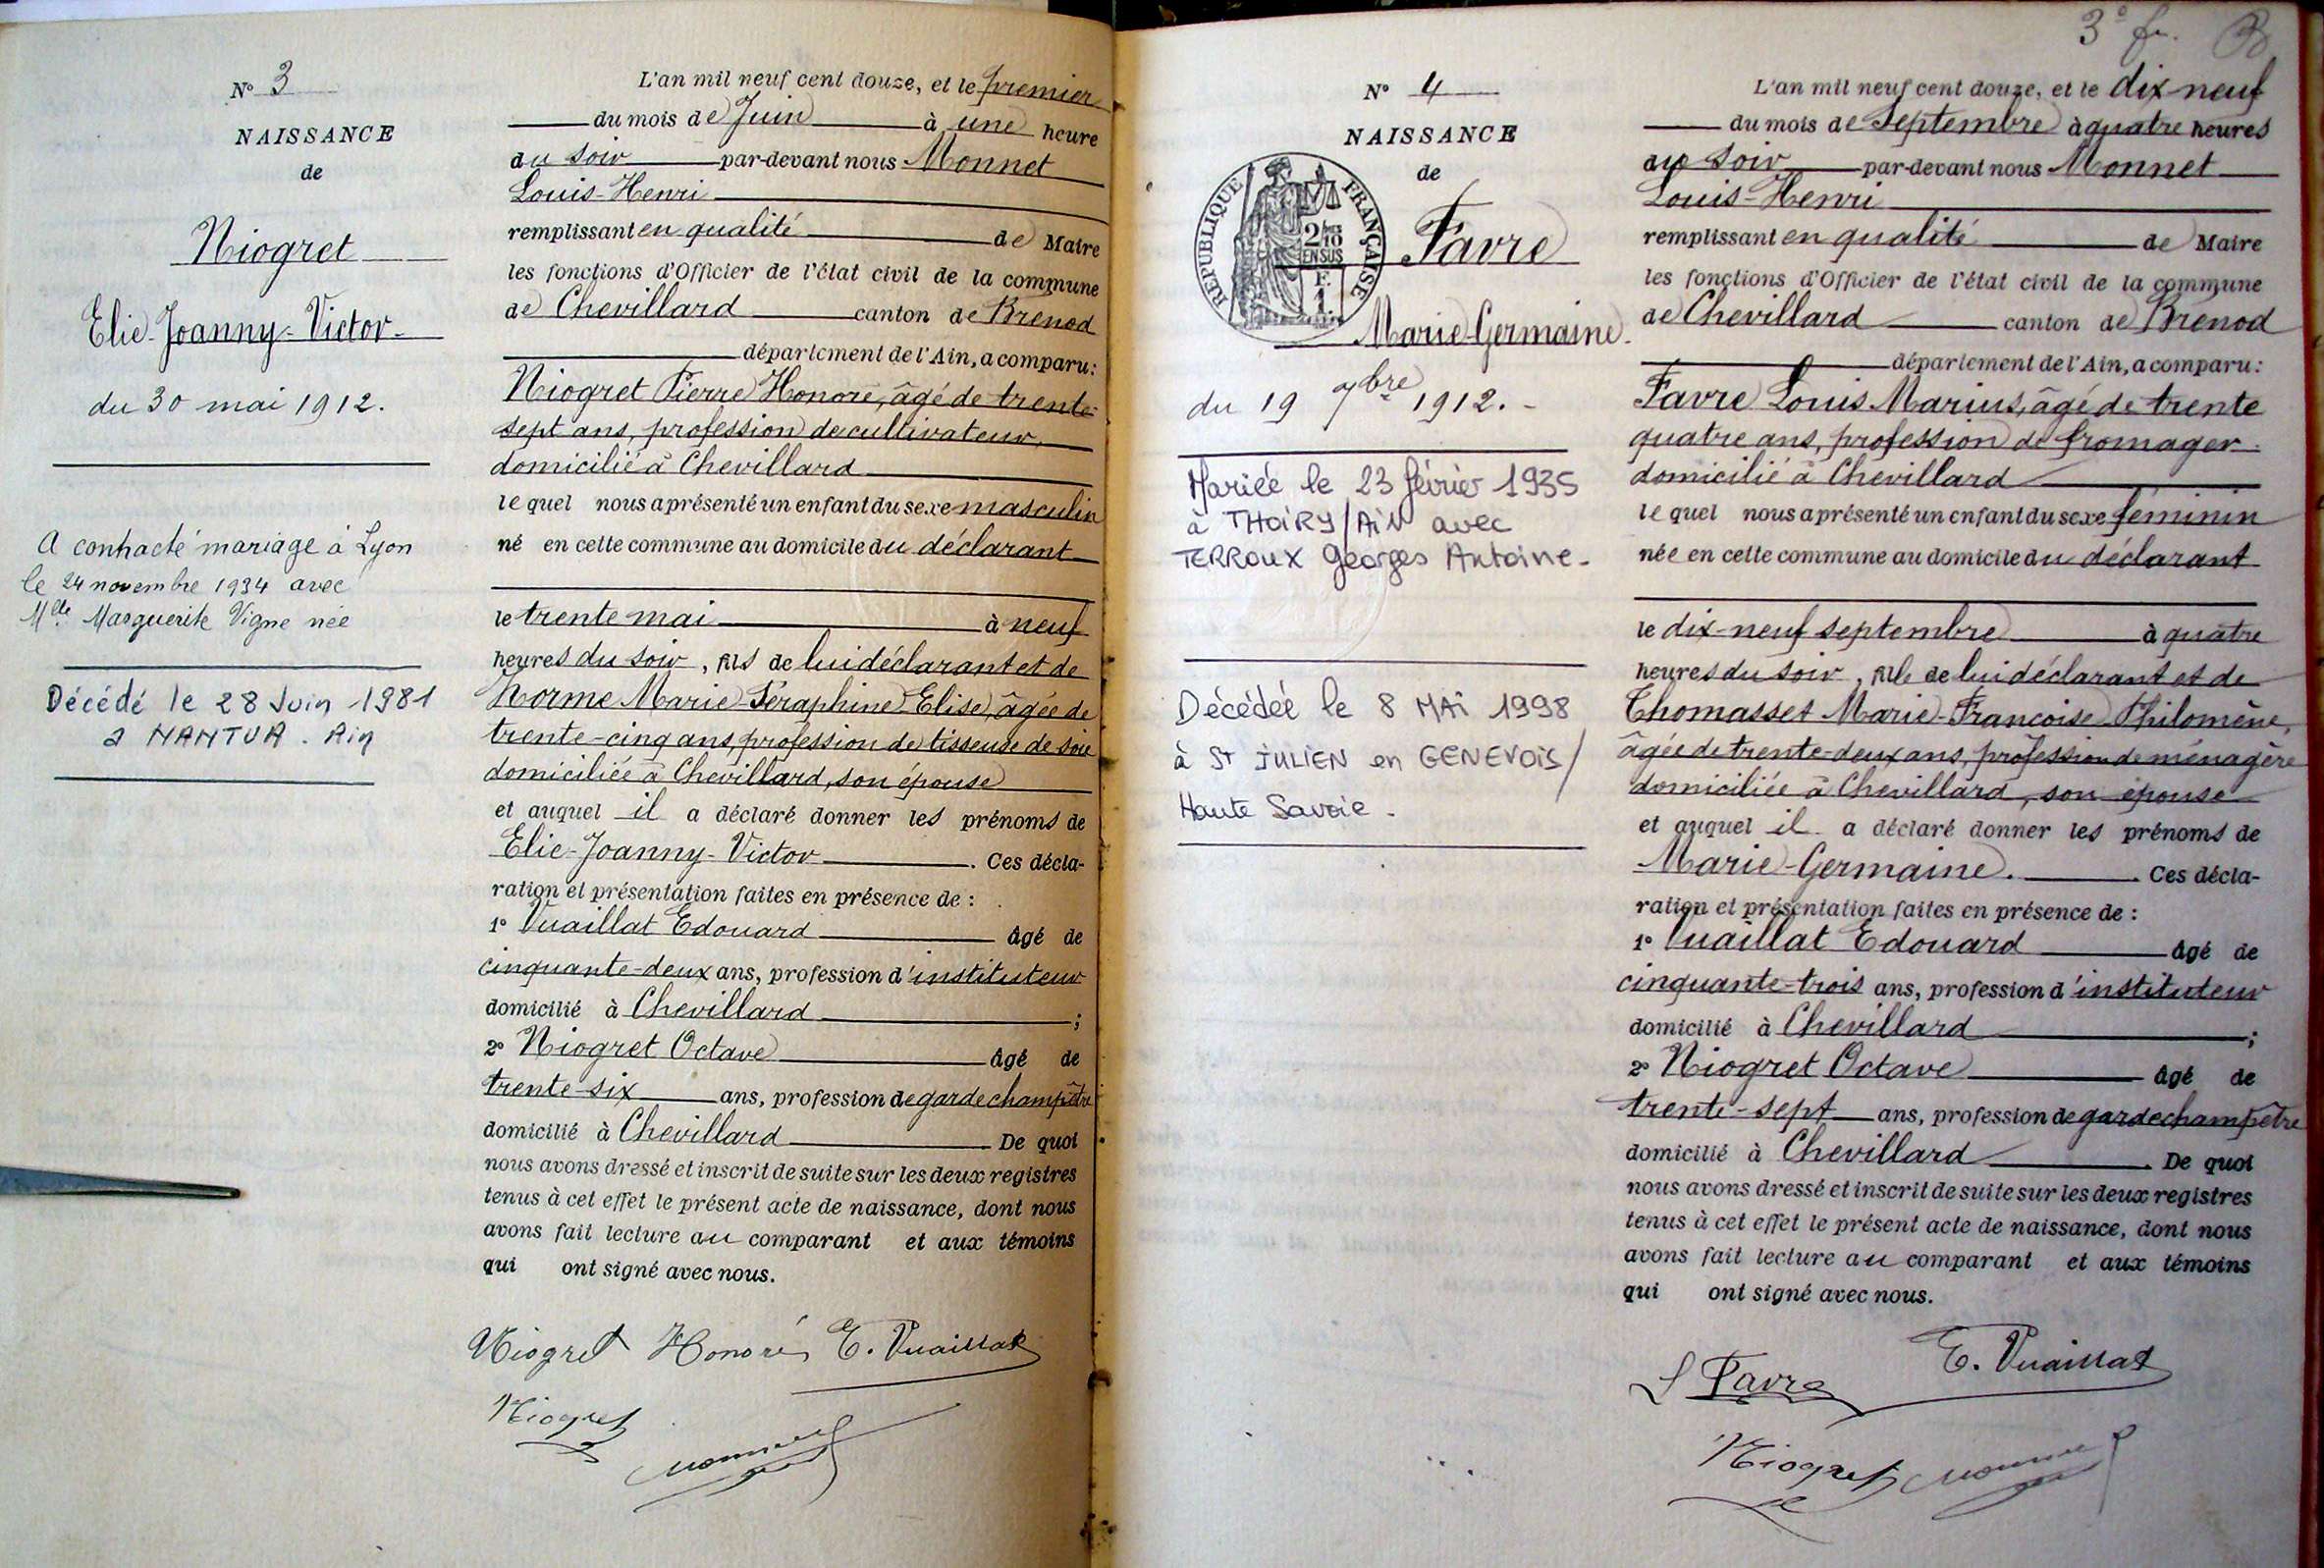 N° 3
NAISSANCE
de
Niogret
Elie-Joanny-Victor-
du 30 mai 1912.
A contracté mariage à Lyon
le 24 novembre 1934 avec
Mlle Marguerite Vigne née
Décédé le 28 Juin 1981
à NANTUA. Ain
L'an mil neuf cent douze, et le premier
du mois de Juin à une heure
du soir par-devant nous Monnet
Louis-Henri
remplissant en qualité de Maire
les fonctions d'Officier de l'état civil de la commune
de Chevillard canton de Brenod
département de l'Ain, a comparu:
Niogret Pierre Honoré, âgé de trente-
sept ans, profession de cultivateur,
domicilié à Chevillard
lequel nous a présenté un enfant du sexe masculin
né en cette commune au domicile du déclarant
le trente mai à neuf
heures du soir, fils de lui déclarant et de
Norme Marie-Séraphine-Elise, âgée de
trente-cinq ans, profession de tisseuse de soie
domiciliée à Chevillard, son épouse
et auquel il a déclaré donner les prénoms de
Elie-Joanny-Victor. Ces décla-
ration et présentation faites en présence de :
1° Vuaillat Edouard âgé de
cinquante-deux ans, profession d'instituteur
domicilié à Chevillard ;
2° Niogret Octave âgé de
trente-six ans, profession de garde champêtre
domicilié à Chevillard. De quoi
nous avons dressé et inscrit de suite sur les deux registres
tenus à cet effet le présent acte de naissance, dont nous
avons fait lecture au comparant et aux témoins
qui ont signé avec nous.
Niogret Honoré E. Vuaillat
Niogret Monnet
3° f.
N° 4
NAISSANCE
de
RÉPUBLIQUE FRANÇAISE
2/10
EN SUS
F.
1
Favre
Marie-Germaine.
du 19 7bre 1912.-
Mariée le 23 février 1935
à THOIRY/AIN avec
TERROUX Georges Antoine-
Décédée le 8 MAI 1998
à St JULIEN en GENEVOIS/
Haute Savoie.
L'an mil neuf cent douze, et le dix-neuf
du mois de Septembre à quatre heures
du soir par-devant nous Monnet
Louis-Henri
remplissant en qualité de Maire
les fonctions d'Officier de l'état civil de la commune
de Chevillard canton de Brenod
département de l'Ain, a comparu:
Favre Louis Marius, âgé de trente
quatre ans, profession de fromager
domicilié à Chevillard
lequel nous a présenté un enfant du sexe féminin
née en cette commune au domicile du déclarant
le dix-neuf septembre à quatre
heures du soir, fille de lui déclarant et de
Thomasset Marie-Françoise Philomène,
âgée de trente-deux ans, profession de ménagère
domiciliée à Chevillard, son épouse
et auquel il a déclaré donner les prénoms de
Marie-Germaine. Ces décla-
ration et présentation faites en présence de :
1° Vuaillat Edouard âgé de
cinquante-trois ans, profession d'instituteur
domicilié à Chevillard ;
2° Niogret Octave âgé de
trente-sept ans, profession de garde champêtre
domicilié à Chevillard. De quoi
nous avons dressé et inscrit de suite sur les deux registres
tenus à cet effet le présent acte de naissance, dont nous
avons fait lecture au comparant et aux témoins
qui ont signé avec nous.
L Favre E. Vuaillat
Niogret Monnet